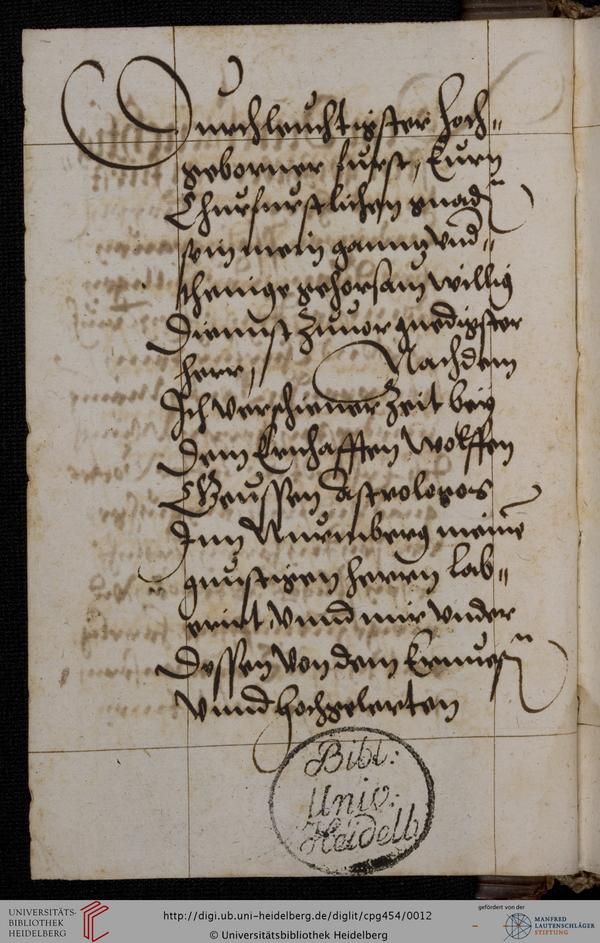 Durchleuchtigster hoch=
geborner furst, Eurn
Churfurstlichen gnadn
sein mein gannz vnd=
thenige gehorsam willig
Diennst zuuor gnedigster
herr, Nachdem
Ich verschiener Zeit bey
Dem Ernhafften Wolffen
Geussen Astrologos
Inn Nurmberg meine
gunstigen herrn lab=
erirt, vnnd mir vnder
Dessen von dem Ernues
vnnd hochgelerten
Bibl:
Univ:
Heidelb
UNIVERSITÄTS-
BIBLIOTHEK
HEIDELBERG
http://digi.ub.uni-heidelberg.de/diglit/cpg454/0012
© Universitätsbibliothek Heidelberg
gefördert von der
MANFRED
LAUTENSCHLÄGER
STIFTUNG